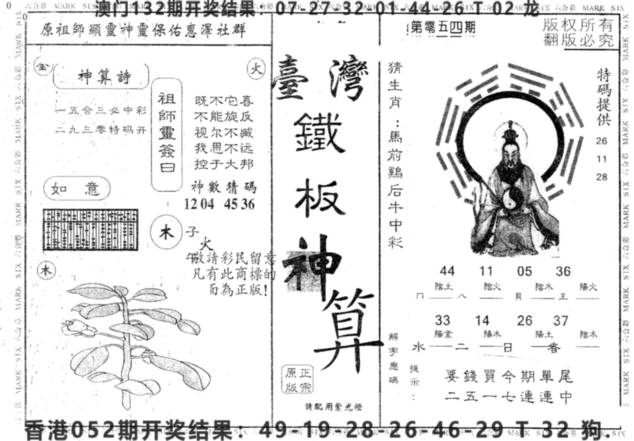 澳门132期开奖结果：07-27-32-01-44-26 T 02 龙
原祖師顯靈神靈保佑惠澤社群
金
神算詩
火
一五合三必中彩
二九三零特碼开
祖師靈簽曰
既不它喜
不能旋反
视尔不臧
我思不远
控于大邦
如意
神數猜碼
12 04 45 36
木
子
火
敬請彩民留意
凡有此商標的
而為正版！
木
臺灣
鐵板神算
正宗
原版
請配用紫光燈
第零五四期
版权所有
翻版必究
猜生肖：馬前鷄后牛中彩
特碼提供
26
11
28
44 11 05 36
陰土 陰火 陰木 陽火
八
33 14 26 37
陽金 陽木 陽土 陰木
水 二 日
解字應碼
提示：
要錢買今期單尾
二五一七連連中
香港052期开奖结果：49-19-28-26-46-29 T 32 狗